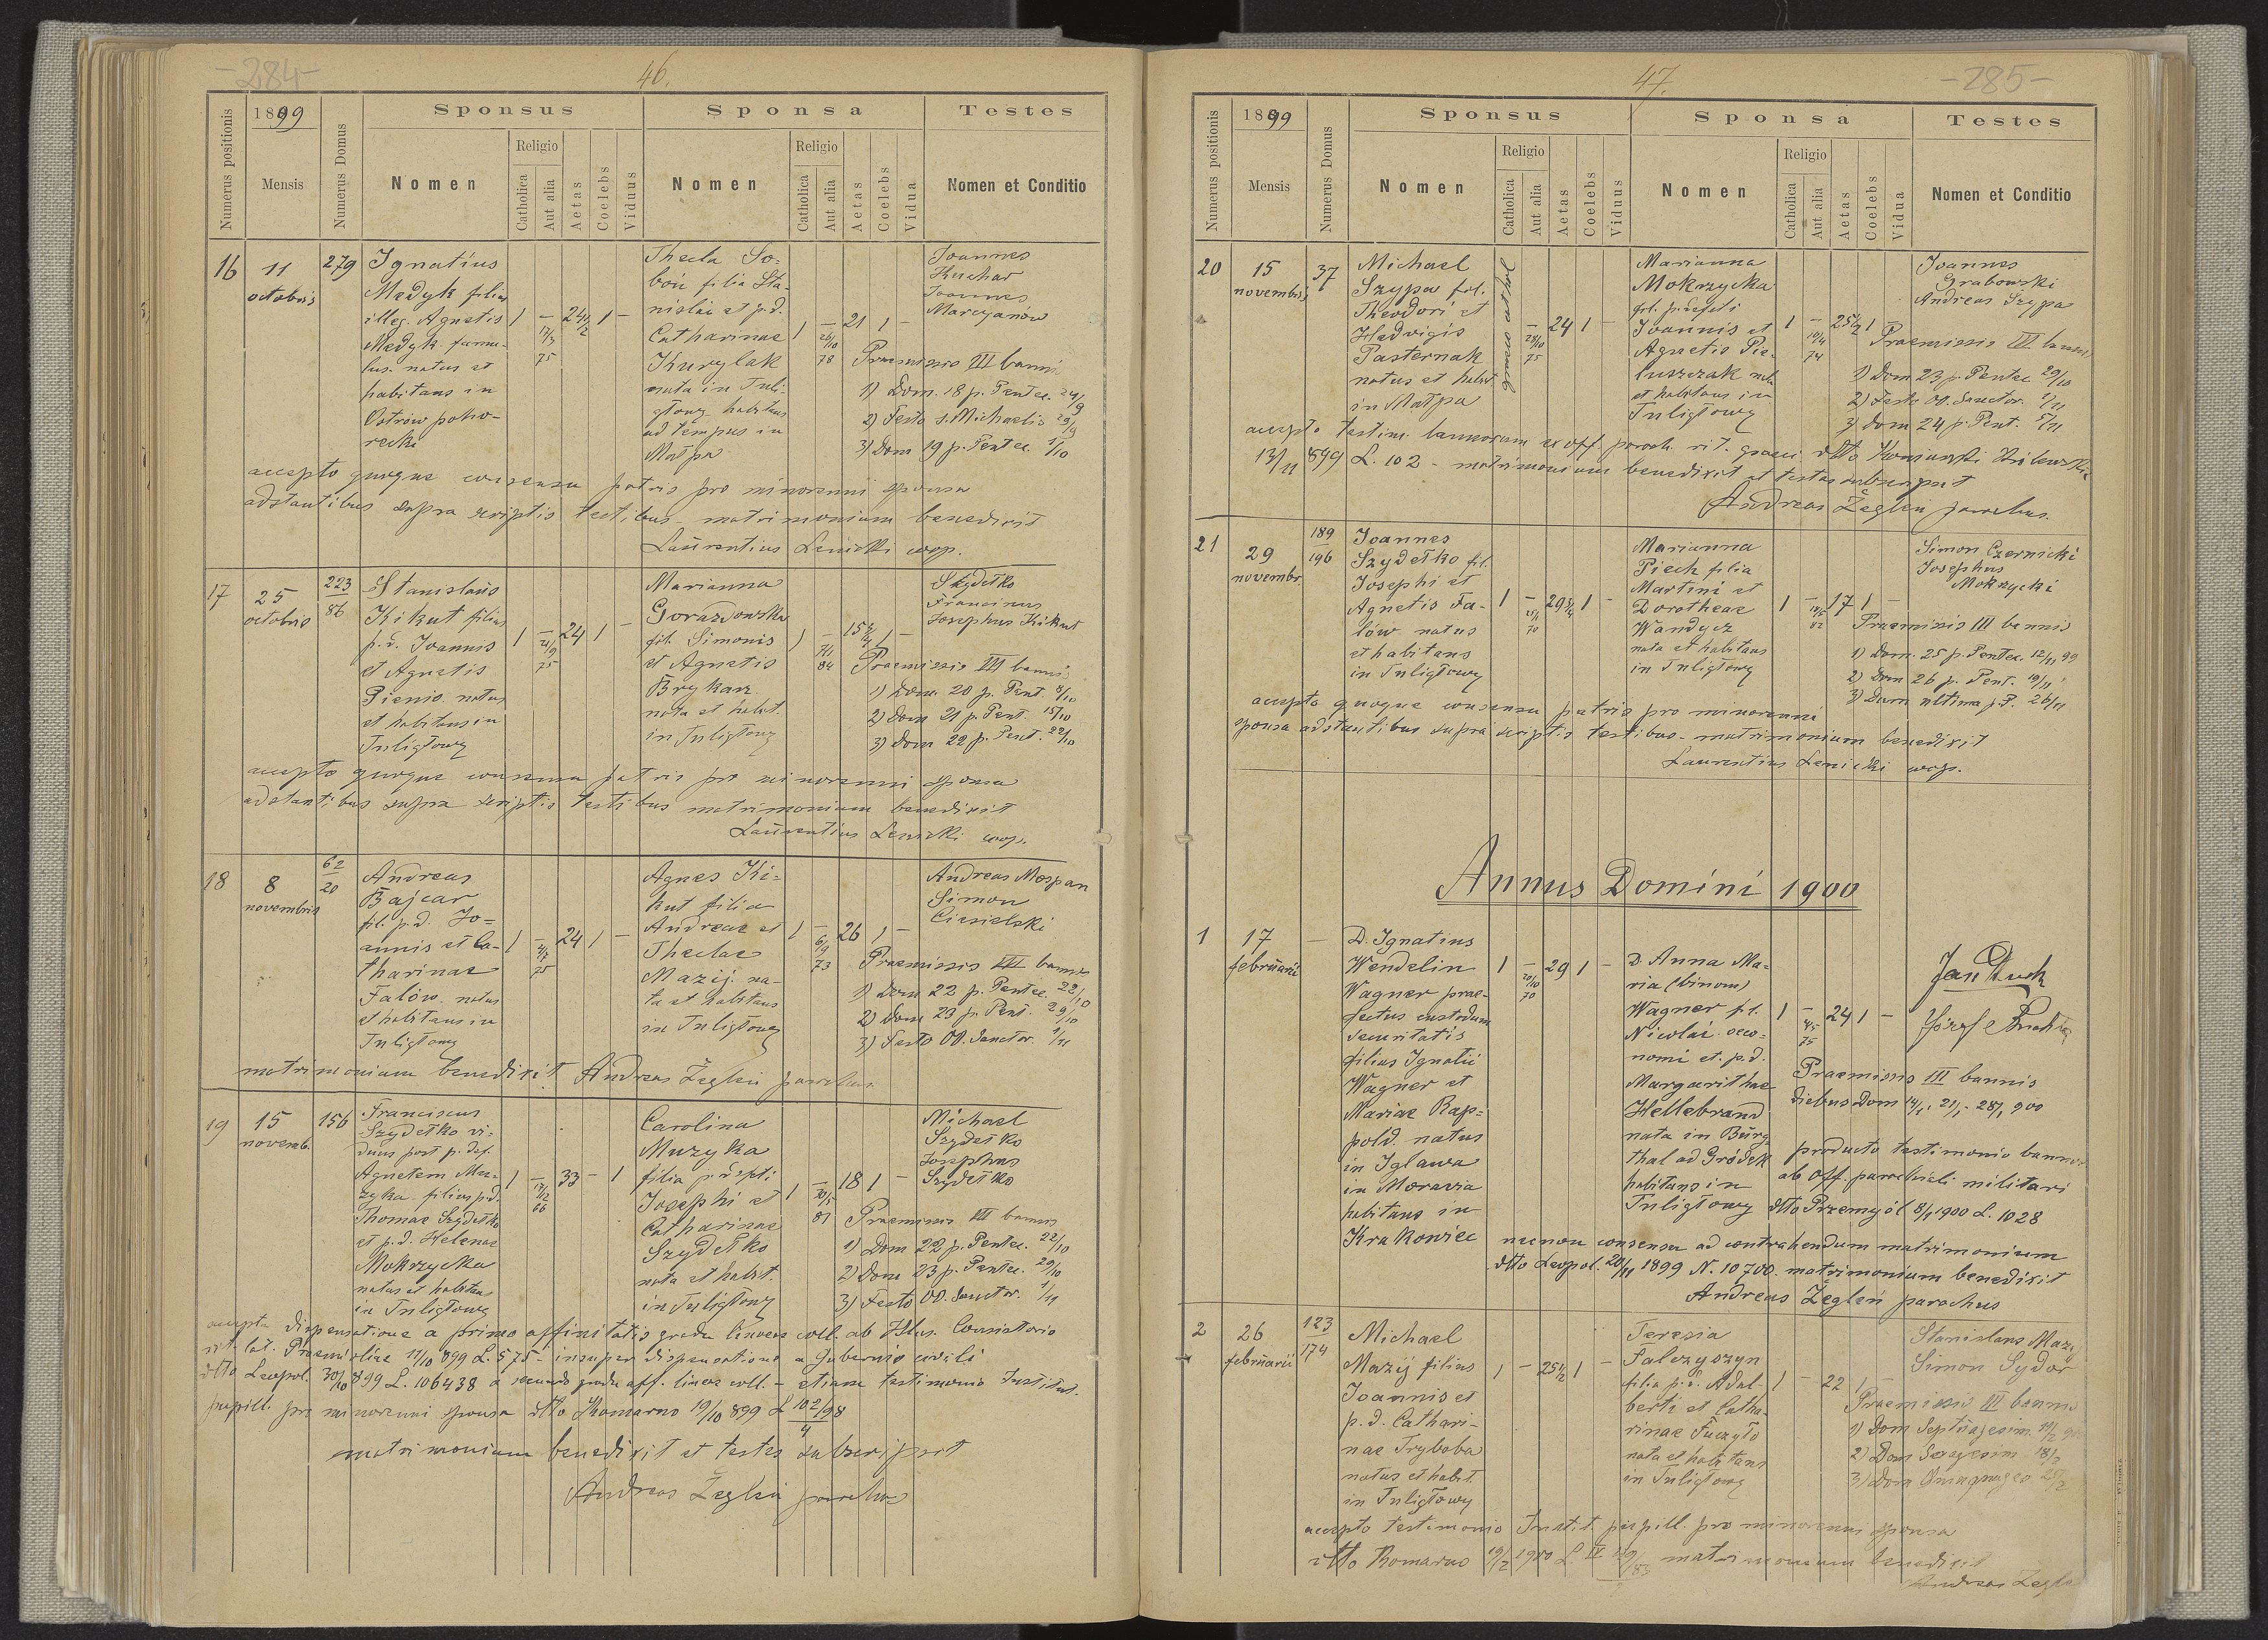 -284-
46.
Numerus positionis
1899
Mensis
Numerus Domus
Sponsus
Nomen
Religio
Catholica
Aut alia
Aetas
Coelebs
Viduus
Sponsa
Nomen
Religio
Catholica
Aut alia
Aetas
Coelebs
Vidua
Testes
Nomen et Conditio
16
11
octobris
279
Ignatius
Medyk filius
illeg. Agnetis
Medyk famu-
lus. natus et
habitans in
Ostrów
1 - 24 1/2 1 -
17/3
75
Thecla So=
boń filia Sta-
nislai et p.d.
Catharinae
Kurylak
nata in Tuli-
głowy habitans
ad tempus in
Małpa
1 - 21 1 -
78
Joannes
Kuchar
Joannes
Marcyanów
Praemissis III bannis
1) Dom. 18 p. Pentec. 24/9
2) Festo s. Michaelis 29/9
3) Dom 19 p. Pentec. 1/10
accepto quoque consensu patris pro minorenni sponsa
adstantibus supra scriptis testibus matrimonium benedixit
Laurentius Lenicki
17
25
octobris
223
86
Stanislaus
Kikut filius
p.d. Joannis
et Agnetis
Pienio natus
et habitans in
Tuligłowy
1 - 24 1 -
21/9
75
Marianna
Gorazdowska
fil. Simonis
et Agnetis
Brykarz
nata et habit.
in Tuligłowy
1 - 15 1 -
84
Szydełko
Franciscus
Josephus Kikut
Praemissis III bannis
1) Dom. 20 p. Pent. 8/10
2) Dom 21 p. Pent. 15/10
3) Dom 22 p. Pent. 22/10
accepto quoque consensu patris pro minorenni sponsa
adstantibus supra scriptis testibus matrimonium benedixit
Laurentius Lenicki
18
8
novembris
62
20
Andreas
Bajcar
fil. p.d. Jo=
annis et Ca-
tharinae
Falów. natus
et habitans in
Tuligłowy
1 - 24 1 -
75
Agnes Ki=
kut filia
Andreae et
Theclae
Mazij. na-
ta et habitans
in Tuligłowy
1 - 26 1 -
6/9
73
Andreas Mospan
Simon
Ciesielski
Praemissis III bannis
1) Dom 22 p. Pentec. 22/10
2) Dom 23 p. Pent. 29/10
3) Festo OO. Sanctor. 1/11
matrimonium benedixit Andreas Żegleń parochus
19
15
novemb.
156
Franciscus
Szydełko vi=
duus post p. def.
Agnetem Mu=
zyka. filius p.d.
Thomae Szydełko
et p.d. Helenae
Mokrzycka
natus et habitans
in Tuligłowy
1 - 33 - 1
17/12
66
Carolina
Muzyka
filia p. defti
Josephi et
Catharinae
Szydełko
nata et habit.
in Tuligłowy
1 - 18 1 -
20/5
81
Michael
Szydełko
Josephus
Szydełko
Praemissis III bannis
1) Dom 22 p. Pentec. 22/10
2) Dom 23 p. Pentec. 29/10
3) Festo OO. Sanctor. 1/11
accepta dispensatione a primo affinitatis gradu lineae coll. ab Illus. Consistorio
rit. lat. Praemisliae 11/10 899 L. 575 - insuper dispensatione a Gubernio civili
dtto Leopol. 30/10 899 L. 106438 a secundo gradu aff. lineae coll. - etiam testimonio Institut.
pupill. pro minorenni sponsa dtto Komarno 19/10 899 L 102/98
4
matrimonium benedixit et testes subscripsit
Andreas Żegleń parochus
47.
-285-
Numerus positionis
1899
Mensis
Numerus Domus
Sponsus
Nomen
Religio
Catholica
Aut alia
Aetas
Coelebs
Viduus
Sponsa
Nomen
Religio
Catholica
Aut alia
Aetas
Coelebs
Vidua
Testes
Nomen et Conditio
20
15
novembris
37
Michael
Szypa fil.
Theodori et
Hedvigis
Pasternak
natus et habit.
in Małpa
- 24 1 -
29/10
75
Marianna
Mokrzycka
fil. p. defti
Joannis et
Agnetis Pie-
luszczak nata
et habitans in
Tuligłowy
1 - 25 1/2 1
19/4
74
Joannes
Grabowski
Andreas Szypa
Praemissis III bannis
1) Dom 23 p. Pentec. 29/10
2) Festo OO. Sanctor. 1/11
3) Dom 24 p. Pent. 5/11
accepto testim. bannorum ex off. paroch. rit. graeci dtto
13/11 899 L. 102 - matrimonium benedixit et testes subscripsit
Andreas Żegleń parochus.
21
29
novembr.
189
196
Joannes
Szydełko fil.
Josephi et
Agnetis Fa-
lów natus
et habitans
in Tuligłowy
1 - 29 3/4 1 -
70
Marianna
Piech filia
Martini et
Dorotheae
Wandycz
nata et habitans
in Tuligłowy
1 - 17 1 -
82
Simon Czernicki
Josephus
Mokrzycki
Praemissis III bannis
1) Dom. 25 p. Pentec. 12/11 99
2) Dom 26 p. Pent. 19/11
3) Dom ultima p. P. 26/11
accepto quoque consensu patris pro minorenni
sponsa adstantibus supra scriptis testibus - matrimonium benedixit
Laurentius Lenicki
Annus Domini 1900
1
17
februarii
-
D. Ignatius
Wendelin
Wagner prae-
fectus custodum
securitatis
filius Ignatii
Wagner et
Mariae Rap=
pold. natus
in Iglawa
in Moravia
habitans in
Krakowiec
1 - 29 1 -
20/10
70
D. Anna Ma=
ria (binom)
Wagner fil.
Nicolai oeco-
nomi et. p.d.
Margarithae
Hellebrand
nata in Burg
thal ad Gródek
habitans in
Tuligłowy
1 - 24 1 -
4/5
75
Jan Duch
Józef
Praemissis III bannis
diebus Dom 14/1, 21/1, 28/1 900
producto testimonio bannor
ab off. parochiali militari
dtto Przemyśl 8/2 1900 L. 1028
necnon consensu ad contrahendum matrimonium
dtto Leopol. 20/11 1899 N. 10700. matrimonium benedixit
Andreas Żegleń parochus
2
26
februarii
123
174
Michael
Mazij filius
Joannis et
p.d. Cathari-
nae Tryboba
natus et habit.
in Tuligłowy
1 - 25 1/2 1 -
Teresia
Falczyszyn
filia p.d. Adal-
berti et Catha-
rinae Fuczyło
nata et habitans
in Tuligłowy
1 - 22 1
Stanislaus Mazij
Simon Sydor
Praemissis III bannis
1) Dom Septuagesim. 11/2
2) Dom Sexagesim 18/2
3) Dom Quinquages. 25/2
accepto testimonio Instit. pupill. pro minorenni sponsa
dtto Komarno 19/2 1900 L. IV matrimonium benedixit
Andreas Żegleń